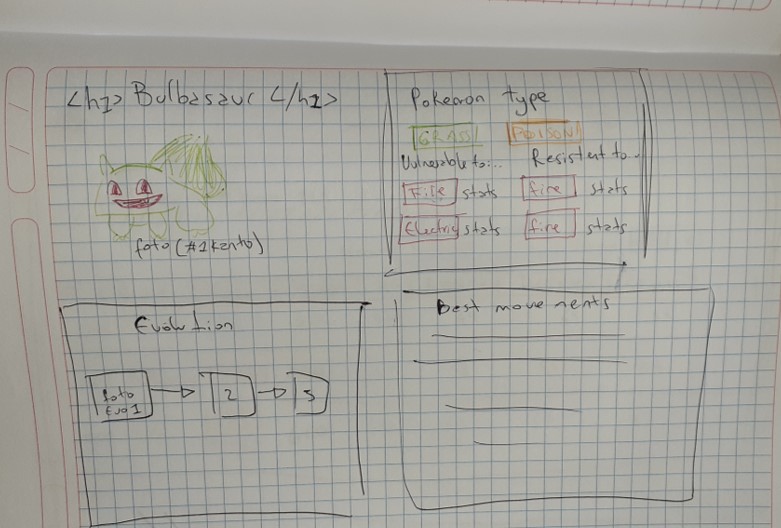 <h1> Bulbasaur </h1>
foto (#1 Kanto)
Pokemon type
GRASS POISON
Vulnerable to... Resistent to...
Fire stats fire stats
Electric stats fire stats
Evolution
foto
Evo 1
2
3
Best movements